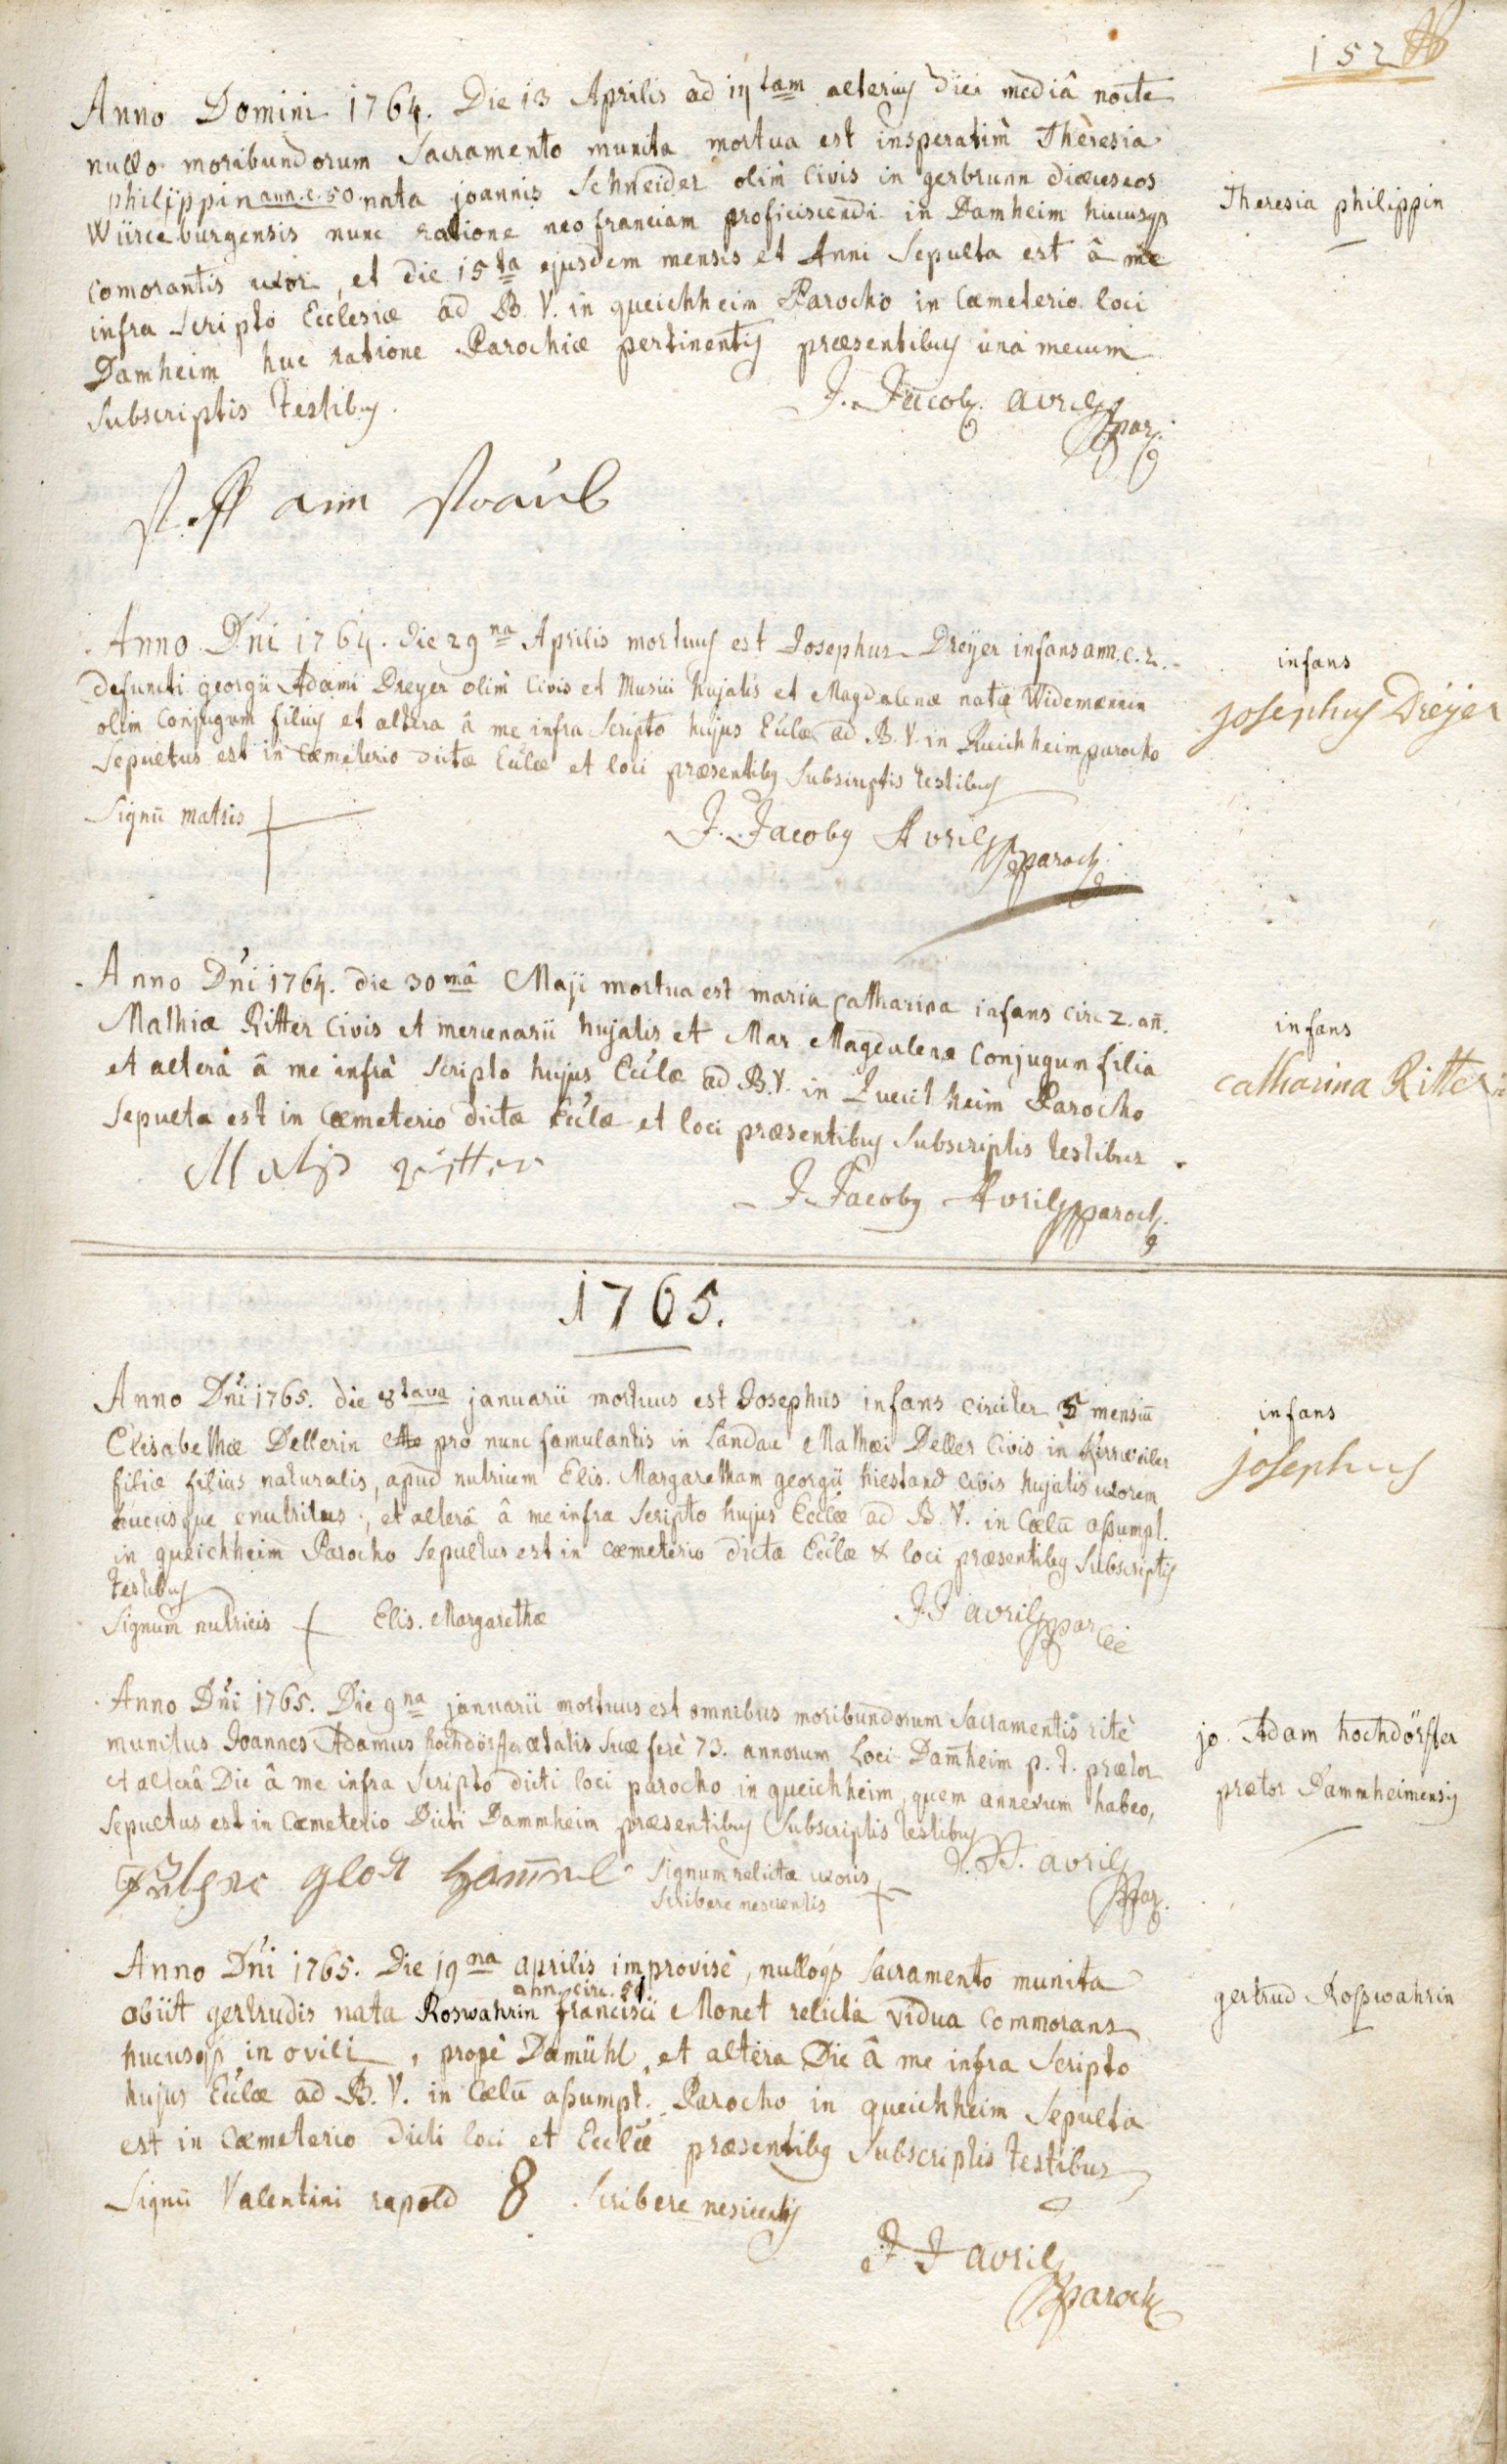 152
Anno Domini 1764. Die 13 Aprilis ad 14tam alterius diei mediâ nocte
nullo moribundorum Sacramento munita mortua est insperatim Theresia
philippin ann. c. 50. nata joannis Schneider olim Civis in gerbrunn diœceseos
Würceburgensis nunc ratione neo franciam proficiscendi in Damheim hucusqs
comorantis uxor, et die 15ta ejusdem mensis et Anni Sepulta est â me
infra Scripto Ecclesiæ ad B. V. in queichheim Parocho in Cœmeterio loci
Damheim huc ratione Parochiæ pertinentis præsentibus unà mecum
Subscriptis testibus.
J. Jacob. avril
par.
Theresia philippin
Anno Dni 1764. die 29na Aprilis mortuus est Josephus Dreÿer infans ann. c. 2.
defuncti georgii Adami Dreyer olim Civis et Musici hujatis et Magdalenæ natæ Widemännin
olim Conjugum filius et altera â me infra Scripto hujus Eclæ ad B. V. in Queichheim parocho
Sepultus est in Cœmeterio dictæ Eclæ et loci præsentibus Subscriptis testibus
Signū matris
J. Jacobus Avril
paroch.
infans
josephus Dreÿer
Anno Dni 1764. die 30mâ Maji mortua est maria Catharina infans circ 2. añ.
Mathiæ Ritter Civis et mercenarii hujatis et Mar Magdalenæ Conjugum filia
et alterâ â me infrà Scripto hujus Eclæ ad B. V. in Queichheim Parocho
Sepulta est in Cœmeterio dictæ Eclæ et loci præsentibus Subscriptis testibus
J. Jacobus Avril paroch.
infans
Catharina Ritterin
1765.
Anno Dni 1765. die 8tava januarii mortuus est Josephus infans circiter 5 mensiū
Elisabethæ Dellerin pro nunc famulantis in Landau Mathæi Deller Civis in Kirrweiler
filiæ filius naturalis, apud nutricem Elis. Margaretham georgii hiestand Civis hujatis uxorem
hucusque enutritus, et alterâ â me infra Scripto hujus Eccliæ ad B. V. in Cœlū assumpt.
in queichheim Parocho Sepultus est in cœmeterio dictæ Eclæ & loci præsentibus Subscriptis
testibus
Signum nutricis Elis. Margarethæ
J. J avril
par
infans
josephus
Anno Dni 1765. Die 9na januarii mortuus est omnibus moribundorum Sacramentis ritè
munitus Joannes Adamus hochdörffer ætatis Suæ ferè 73. annorum Loci Dam̄heim p. t. prætor
et alterâ Die â me infra Scripto dicti loci parocho in queichheim, quem annexum habeo,
Sepultus est in Cœmeterio Dicti Dammheim præsentibus Subscriptis testibus
Signum relictæ uxoris
Scribere nescientis
J. J. avril
par.
jo. Adam hochdörffer
prætor Dammheimensis
Anno Dni 1765. Die 19na aprilis improvisè, nulloqs Sacramento munita
ann. circ. 51.
obiit gertrudis nata Roswahrin francisci Monet relicta vidua Commorans
hucusqs in ovili, propè Damühl, et altera Die â me infra Scripto
hujus Eclæ ad B. V. in Cœlū assumpt. Parocho in queichheim Sepulta
est in Cœmeterio dicti loci et Eccliæ præsentibus Subscriptis testibus
Signū Valentini rapold 8 Scribere nescientis
J J avril
paroch
gertrud Rosswahrin